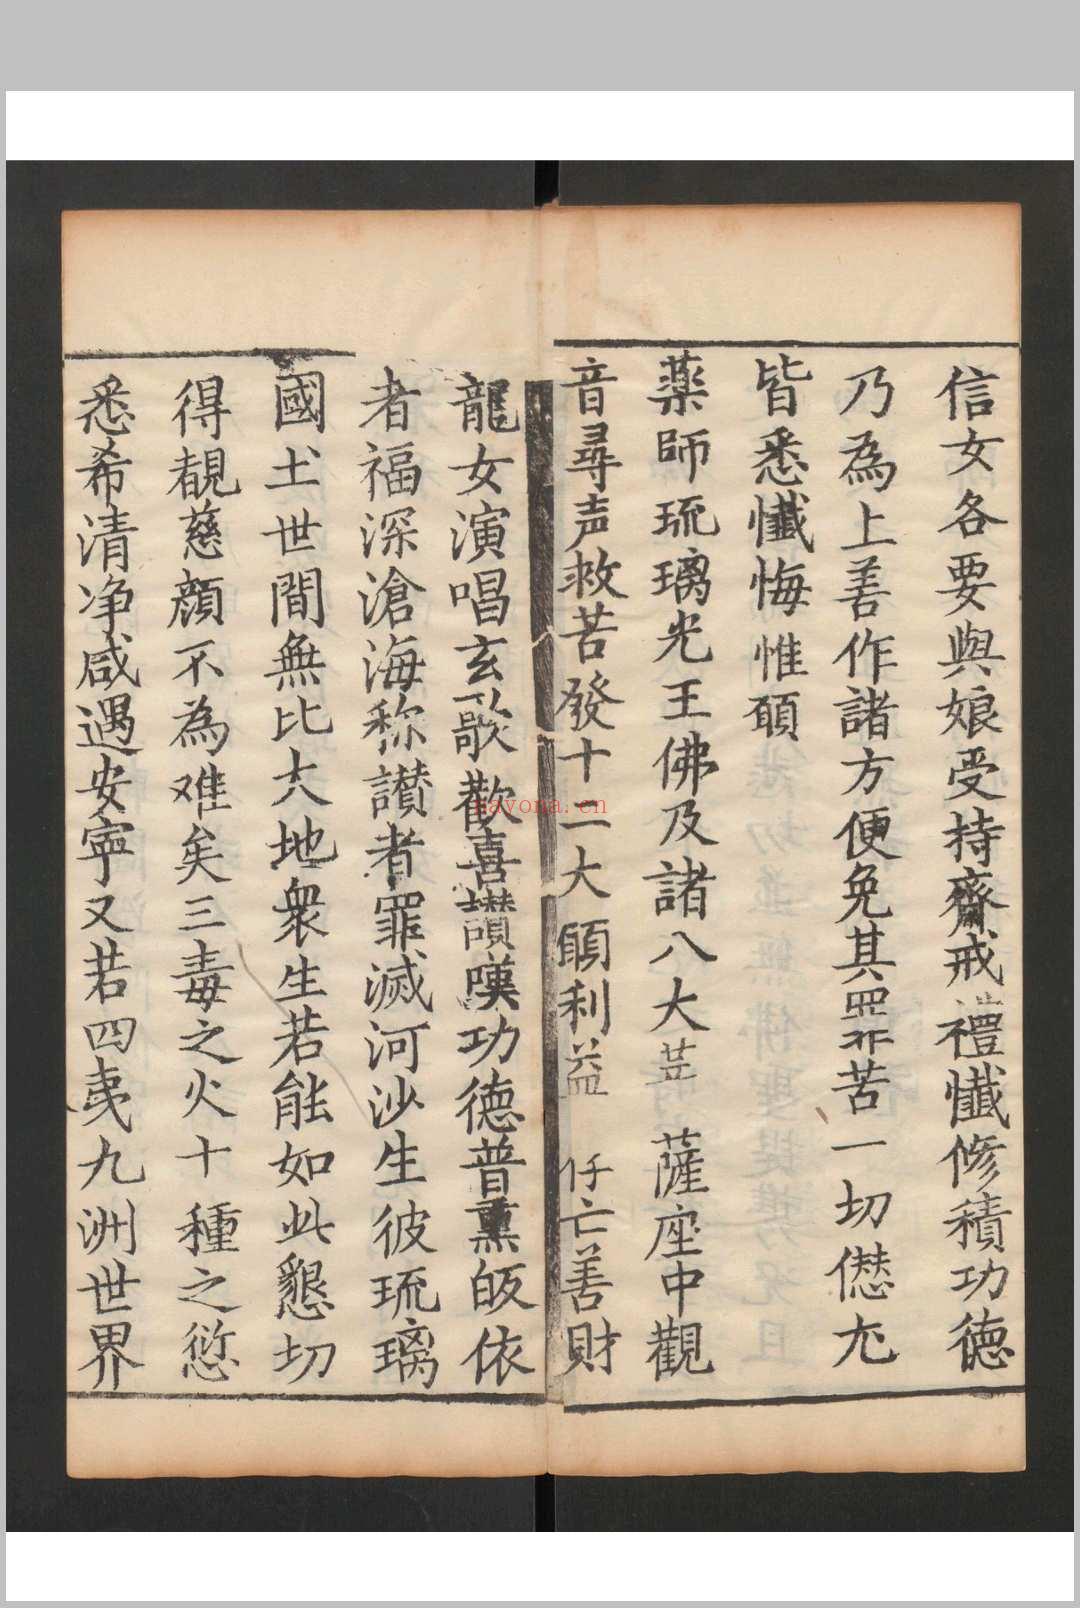 信女各要與娘受持齋戒禮懺修積功德
乃為上善作諸方便免其罪苦一切僁尤
皆悉懺悔惟願
薬師琉璃光王佛及諸八大菩薩座中觀
音尋声救苦發十二大願利益 仟亡善財
龍女演唱玄歌歡喜讃嘆功德普熏皈依
者福深滄海称讃者罪滅河沙生彼琉璃
國土世間無比大地衆生若能如此懇切
得覩慈顔不為难矣三毒之火十種之愆
悉希清净咸遇安寧又若四夷九洲世界
savona.cn